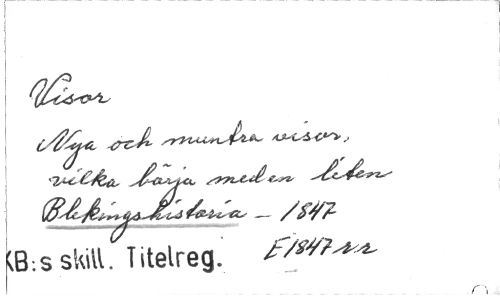 Visor
Nya och muntra visor,
vilka börja med en liten
Blekingshistoria – 1847
E 1847 r r
KB:s skill. Titelreg.